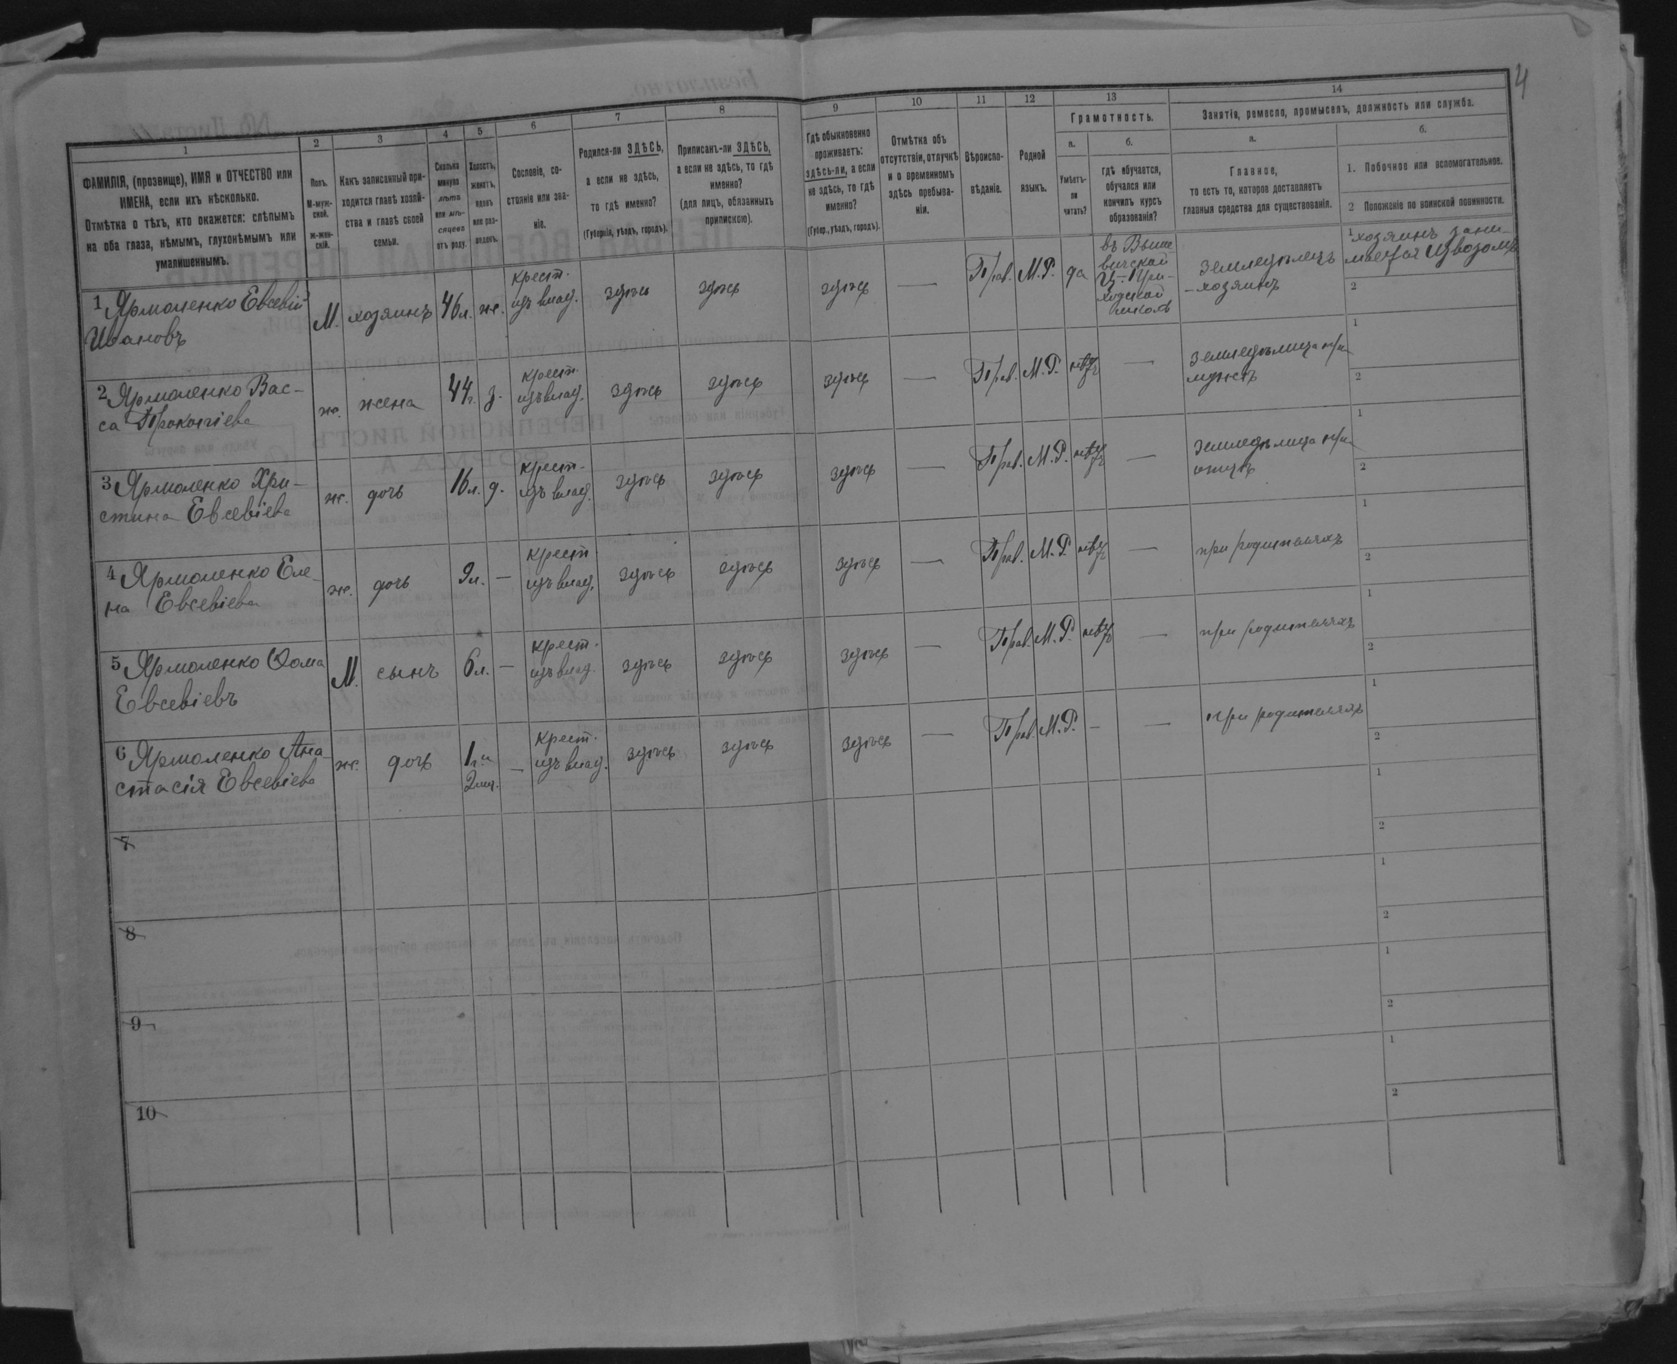 4
1
2
3
4
5
6
7
8
9
10
11
12
13
14
ФАМИЛІЯ, (прозвище), ИМЯ и ОТЧЕСТВО или
ИМЕНА, если ихъ нѣсколько.
Отмѣтка о тѣхъ, кто окажется: слѣпымъ
на оба глаза, нѣмымъ, глухонѣмымъ или
умалишеннымъ.
Полъ.
М-муж-
ской.
Ж-жен-
скій.
Какъ записанный при-
ходится главѣ хозяй-
ства и главѣ своей
семьи.
Сколько
минуло
лѣтъ
или мѣ-
сяцевъ
отъ роду.
Холостъ,
женатъ,
вдовъ
или раз-
веденъ.
Сословіе, со-
стояніе или зва-
ніе.
Родился-ли ЗДѢСЬ,
а если не здѣсь,
то гдѣ именно?
(Губернія, уѣздъ, городъ).
Приписанъ-ли ЗДѢСЬ,
а если не здѣсь, то гдѣ
именно?
(для лицъ, обязанныхъ
припискою).
Гдѣ обыкновенно
проживаетъ:
здѣсь-ли, а если
не здѣсь, то гдѣ
именно?
(Губер., уѣздъ, городъ).
Отмѣтка объ
отсутствіи, отлучкѣ
и о временномъ
здѣсь пребыва-
ніи.
Вѣроиспо-
вѣданіе.
Родной
языкъ.
Грамотность.
а.
Умѣетъ-
ли
читать?
б.
гдѣ обучается,
обучался или
кончилъ курсъ
образованія?
Занятія, ремесло, промыселъ, должность или служба.
а.
Главное,
то есть то, которое доставляетъ
главныя средства для существованія.
б.
1. Побочное или вспомогательное.
2 Положеніе по воинской повинности.
1 Ярмоленко Евсевій
Ивановъ
М.
хозяинъ
46 л.
ж.
крест.
изъ влад.
здѣсь
здѣсь
здѣсь
—
Прав.
М.Р.
да
въ Выше
вичской
Ц.-При-
ходской
школѣ
земледѣлецъ
-хозяинъ
1 хозяинъ зани-
мается Извозомъ
2
2 Ярмоленко Вас-
са Прокопіева
ж.
жена
44 г.
з.
крест.
изъ влад.
здѣсь
здѣсь
здѣсь
—
Прав.
М.Р.
нѣтъ
—
земледѣлица при
мужѣ
1
2
3 Ярмоленко Хри-
стина Евсевіева
ж.
дочь
16 л.
д.
крест.
изъ влад.
здѣсь
здѣсь
здѣсь
—
Прав.
М.Р.
нѣтъ
—
земледѣлица при
отцѣ
1
2
4 Ярмоленко Еле-
на Евсевіева
ж.
дочь
9 л.
—
крест
изъ влад.
здѣсь
здѣсь
здѣсь
—
Прав.
М.Р.
нѣтъ
—
при родителяхъ
1
2
5 Ярмоленко Ѳома
Евсевіевъ
М.
сынъ
6 л.
—
крест.
изъ влад.
здѣсь
здѣсь
здѣсь
—
Прав.
М.Р.
нѣтъ
—
при родителяхъ
1
2
6 Ярмоленко Ана-
стасія Евсевіева
ж.
дочь
1 г. и
2 мѣс.
—
крест.
изъ влад.
здѣсь
здѣсь
здѣсь
—
Прав.
М.Р.
—
—
при родителяхъ
1
2
7
1
2
8
1
2
9
1
2
10
1
2